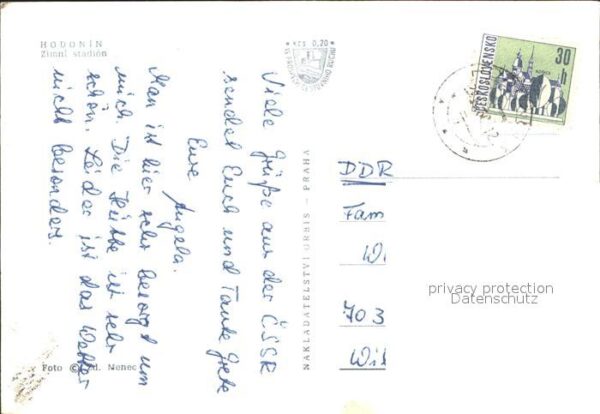 HODONÍN
Zimní stadión
Kčs 0,20
Viele Grüße aus der ČSSR
sendet Euch und Tante Grete
Eure Angela.
Man ist hier sehr besorgt um
mich. Die Küste ist sehr
schön. Leider ist das Wetter
nicht besonders.
Foto © Nenec
NAKLADATELSTVÍ ORBIS – PRAHA
30
h
ČESKOSLOVENSKO
DDR
Fam
Wi
703
Wil
privacy protection
Datenschutz